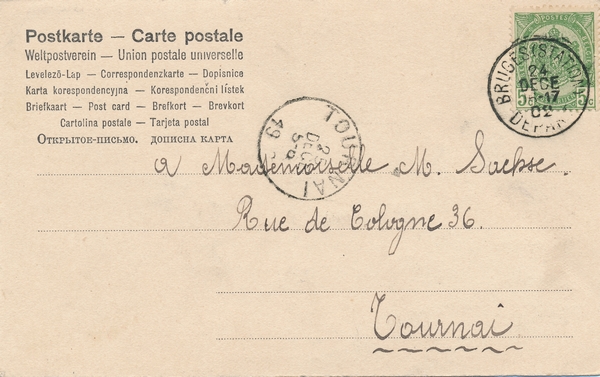 Postkarte — Carte postale
Weltpostverein — Union postale universelle
Levelező-Lap — Correspondenzkarte — Dopisnice
Karta korespondencyjna — Korespondenční lístek
Briefkaart — Post card — Brefkort — Brevkort
Cartolina postale — Tarjeta postal
Открытое-письмо. дописна карта
POSTES
BRUGES (STATION)
24
DECE
-17
02
DEPART
TOURNAI
DECE
19
à Mademoiselle M. Sachse.
Rue de Cologne 36.
Tournai